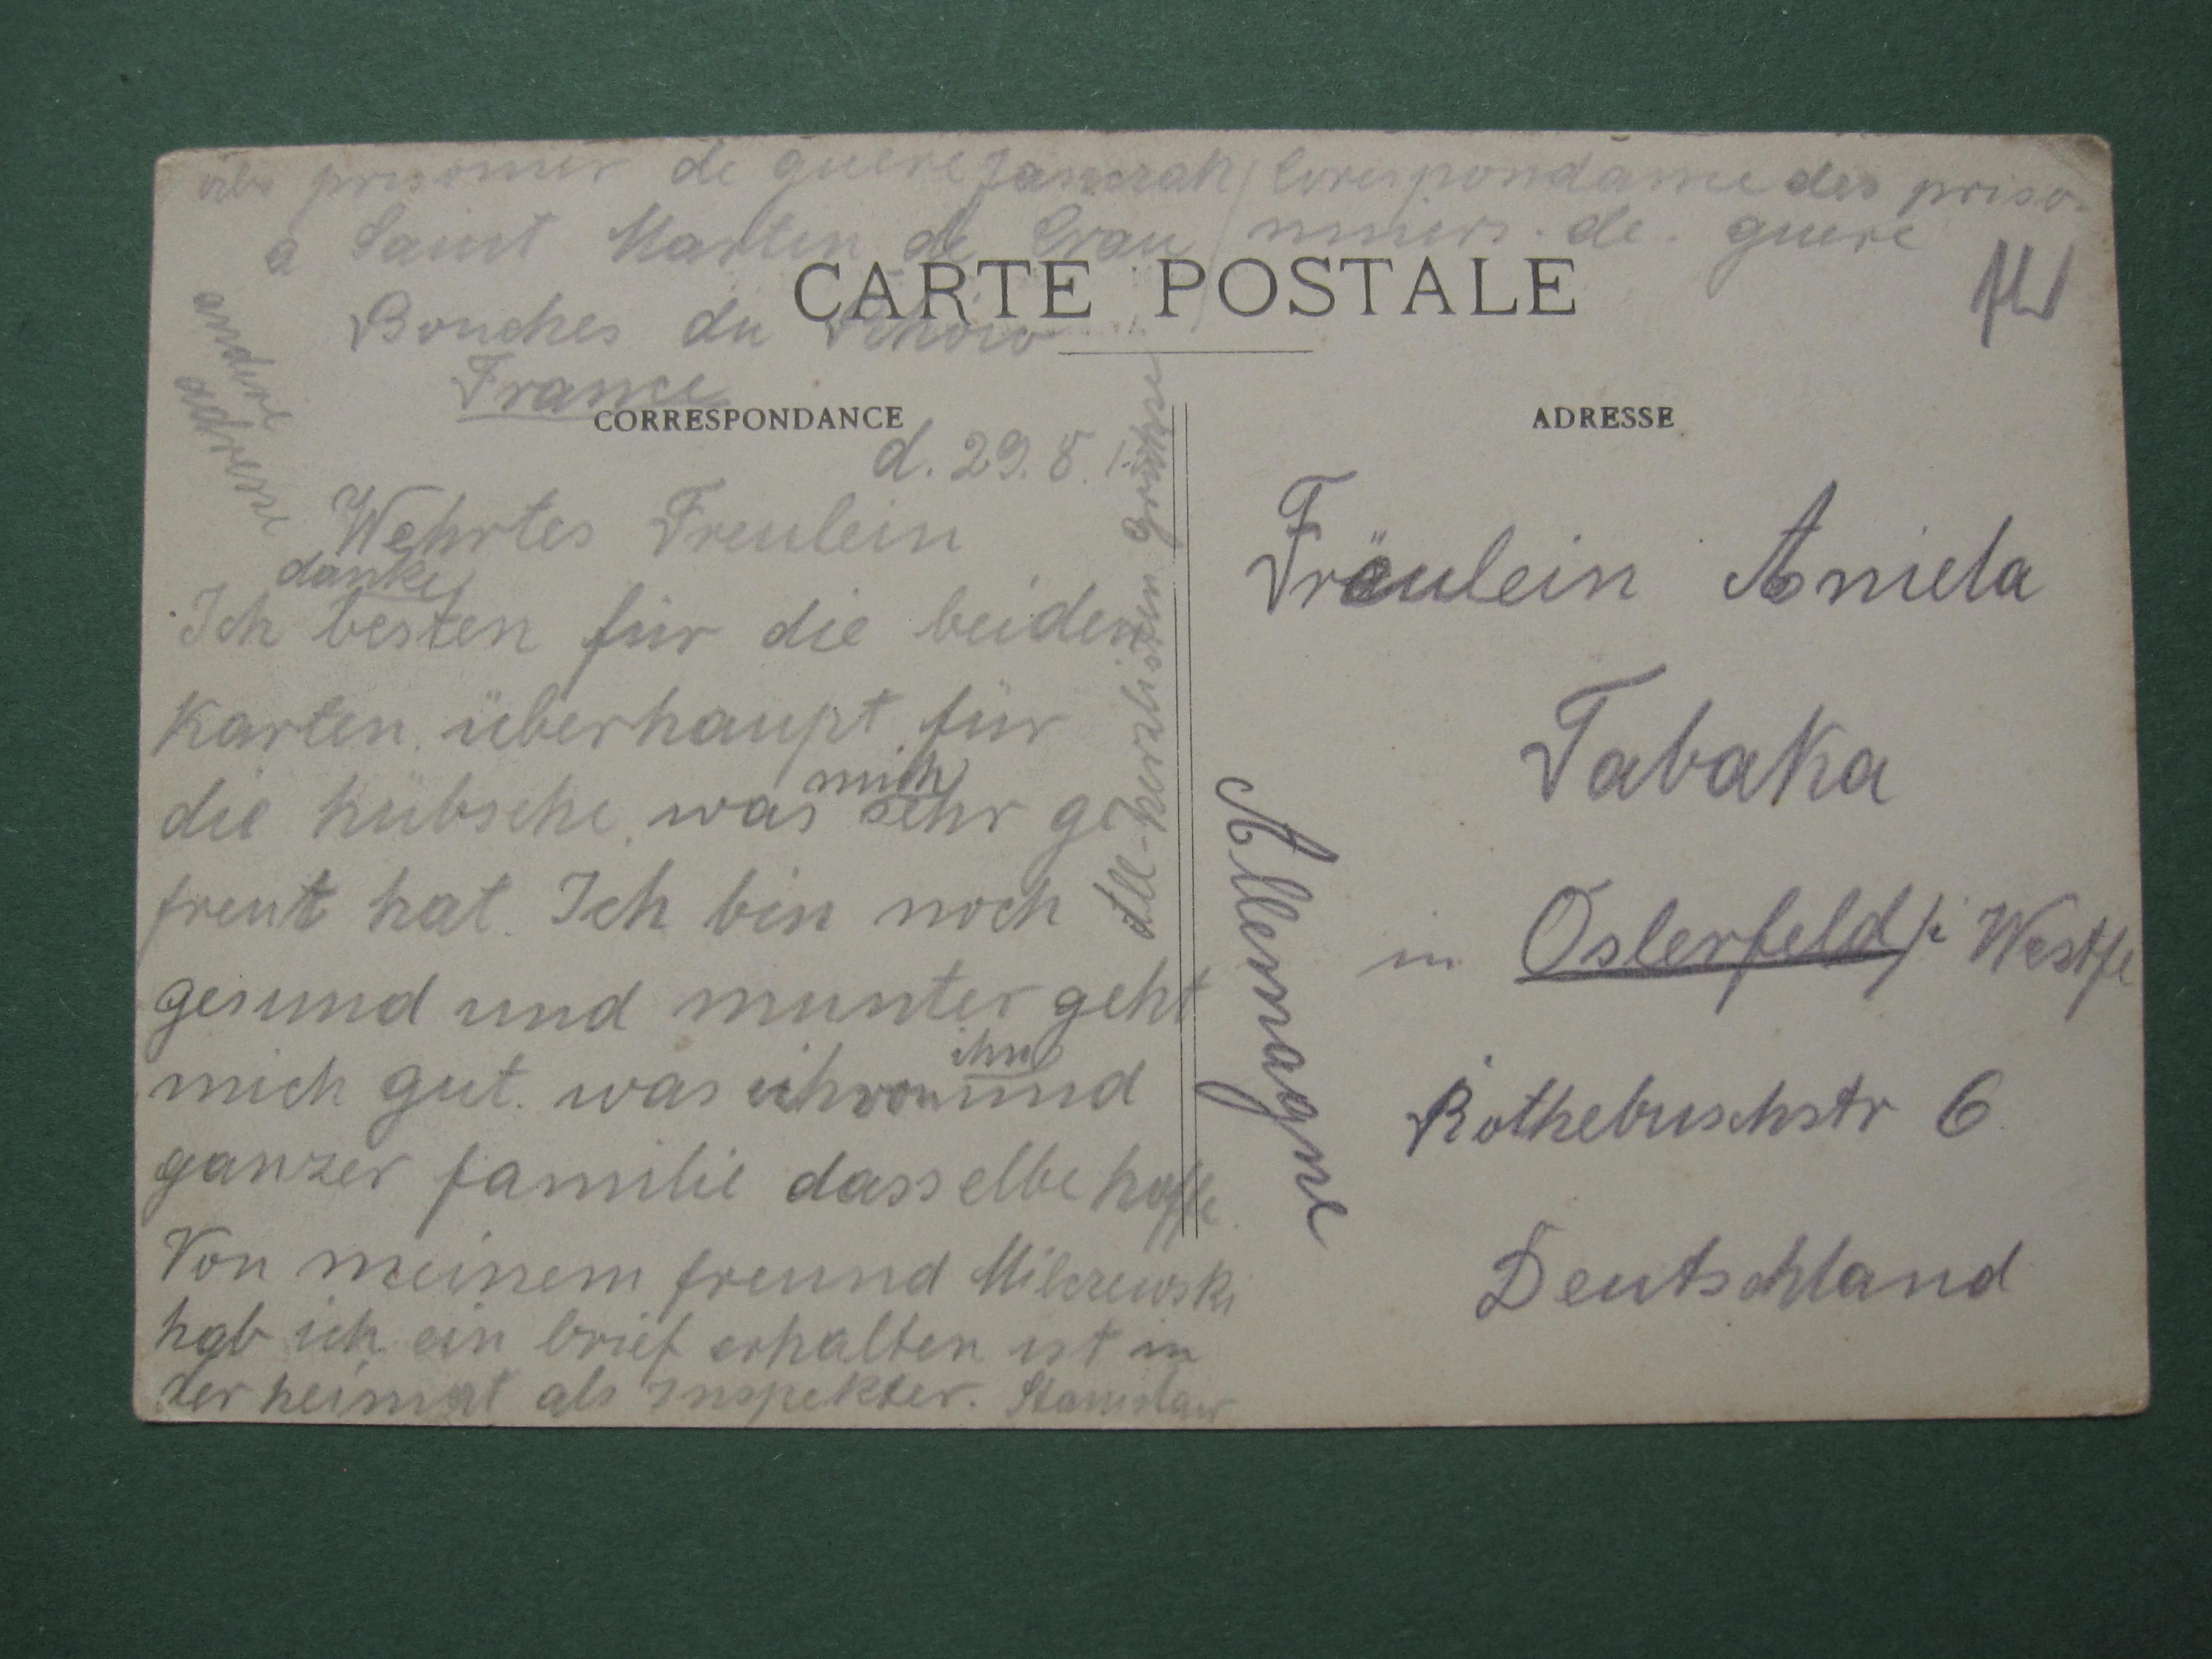 prisonnir de guere Janurak / Corespondance des priso-
a Saint Martin de Crau / nniers. de. guere
CARTE POSTALE
Bouches du
France
andere
adresse
CORRESPONDANCE
d. 29. 8. 1
Wehrtes Freulein
danke
Ich besten für die beiden
Karten. überhaupt für
mich
die hübsche, was sehr ge
freut hat. Ich bin noch
gesund und munter geht
ihn
mich gut. was ich von und
ganzer familie dasselbe hoffe.
Von meinem freund Milczewski
hab ich ein brief erhalten ist in
der heimat als Inspekter. Stanislaw
die herzlisten grüsse
ADRESSE
Fräulein Aniela
Tabaka
in Osterfeld / i Westfe
Rothebuschstr 6
Deutschland
Allemagne